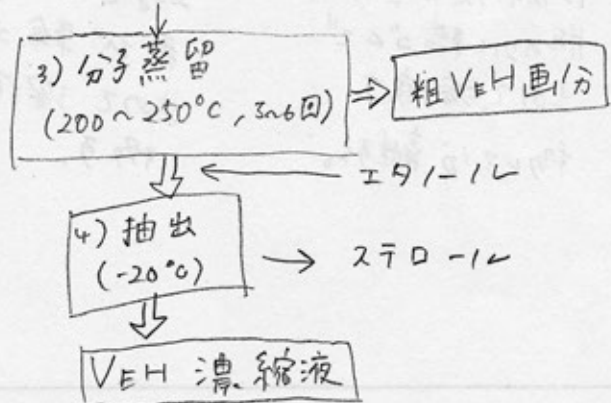 3) 分子蒸留
(200~250°C, 3~6回)
粗VEH画分
エタノール
4) 抽出
(-20°C)
ステロール
VEH 濃縮液